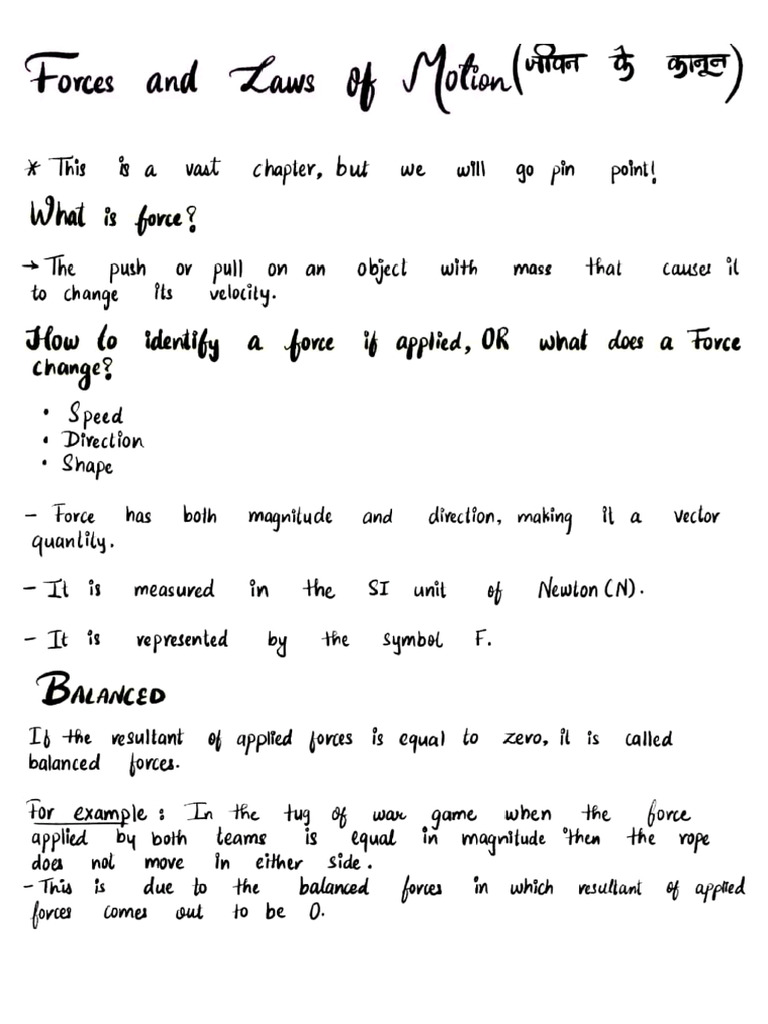 Forces and Laws of Motion (जीवन के कानून)
* This is a vast chapter, but we will go pin point!
What is force?
→ The push or pull on an object with mass that causes it
to change its velocity.
How to identify a force if applied, OR what does a Force
change?
• Speed
• Direction
• Shape
- Force has both magnitude and direction, making it a vector
quantity.
- It is measured in the SI unit of Newton (N).
- It is represented by the symbol F.
BALANCED
If the resultant of applied forces is equal to zero, it is called
balanced forces.
For example : In the tug of war game when the force
applied by both teams is equal in magnitude then the rope
does not move in either side.
- This is due to the balanced forces in which resultant of applied
forces comes out to be 0.